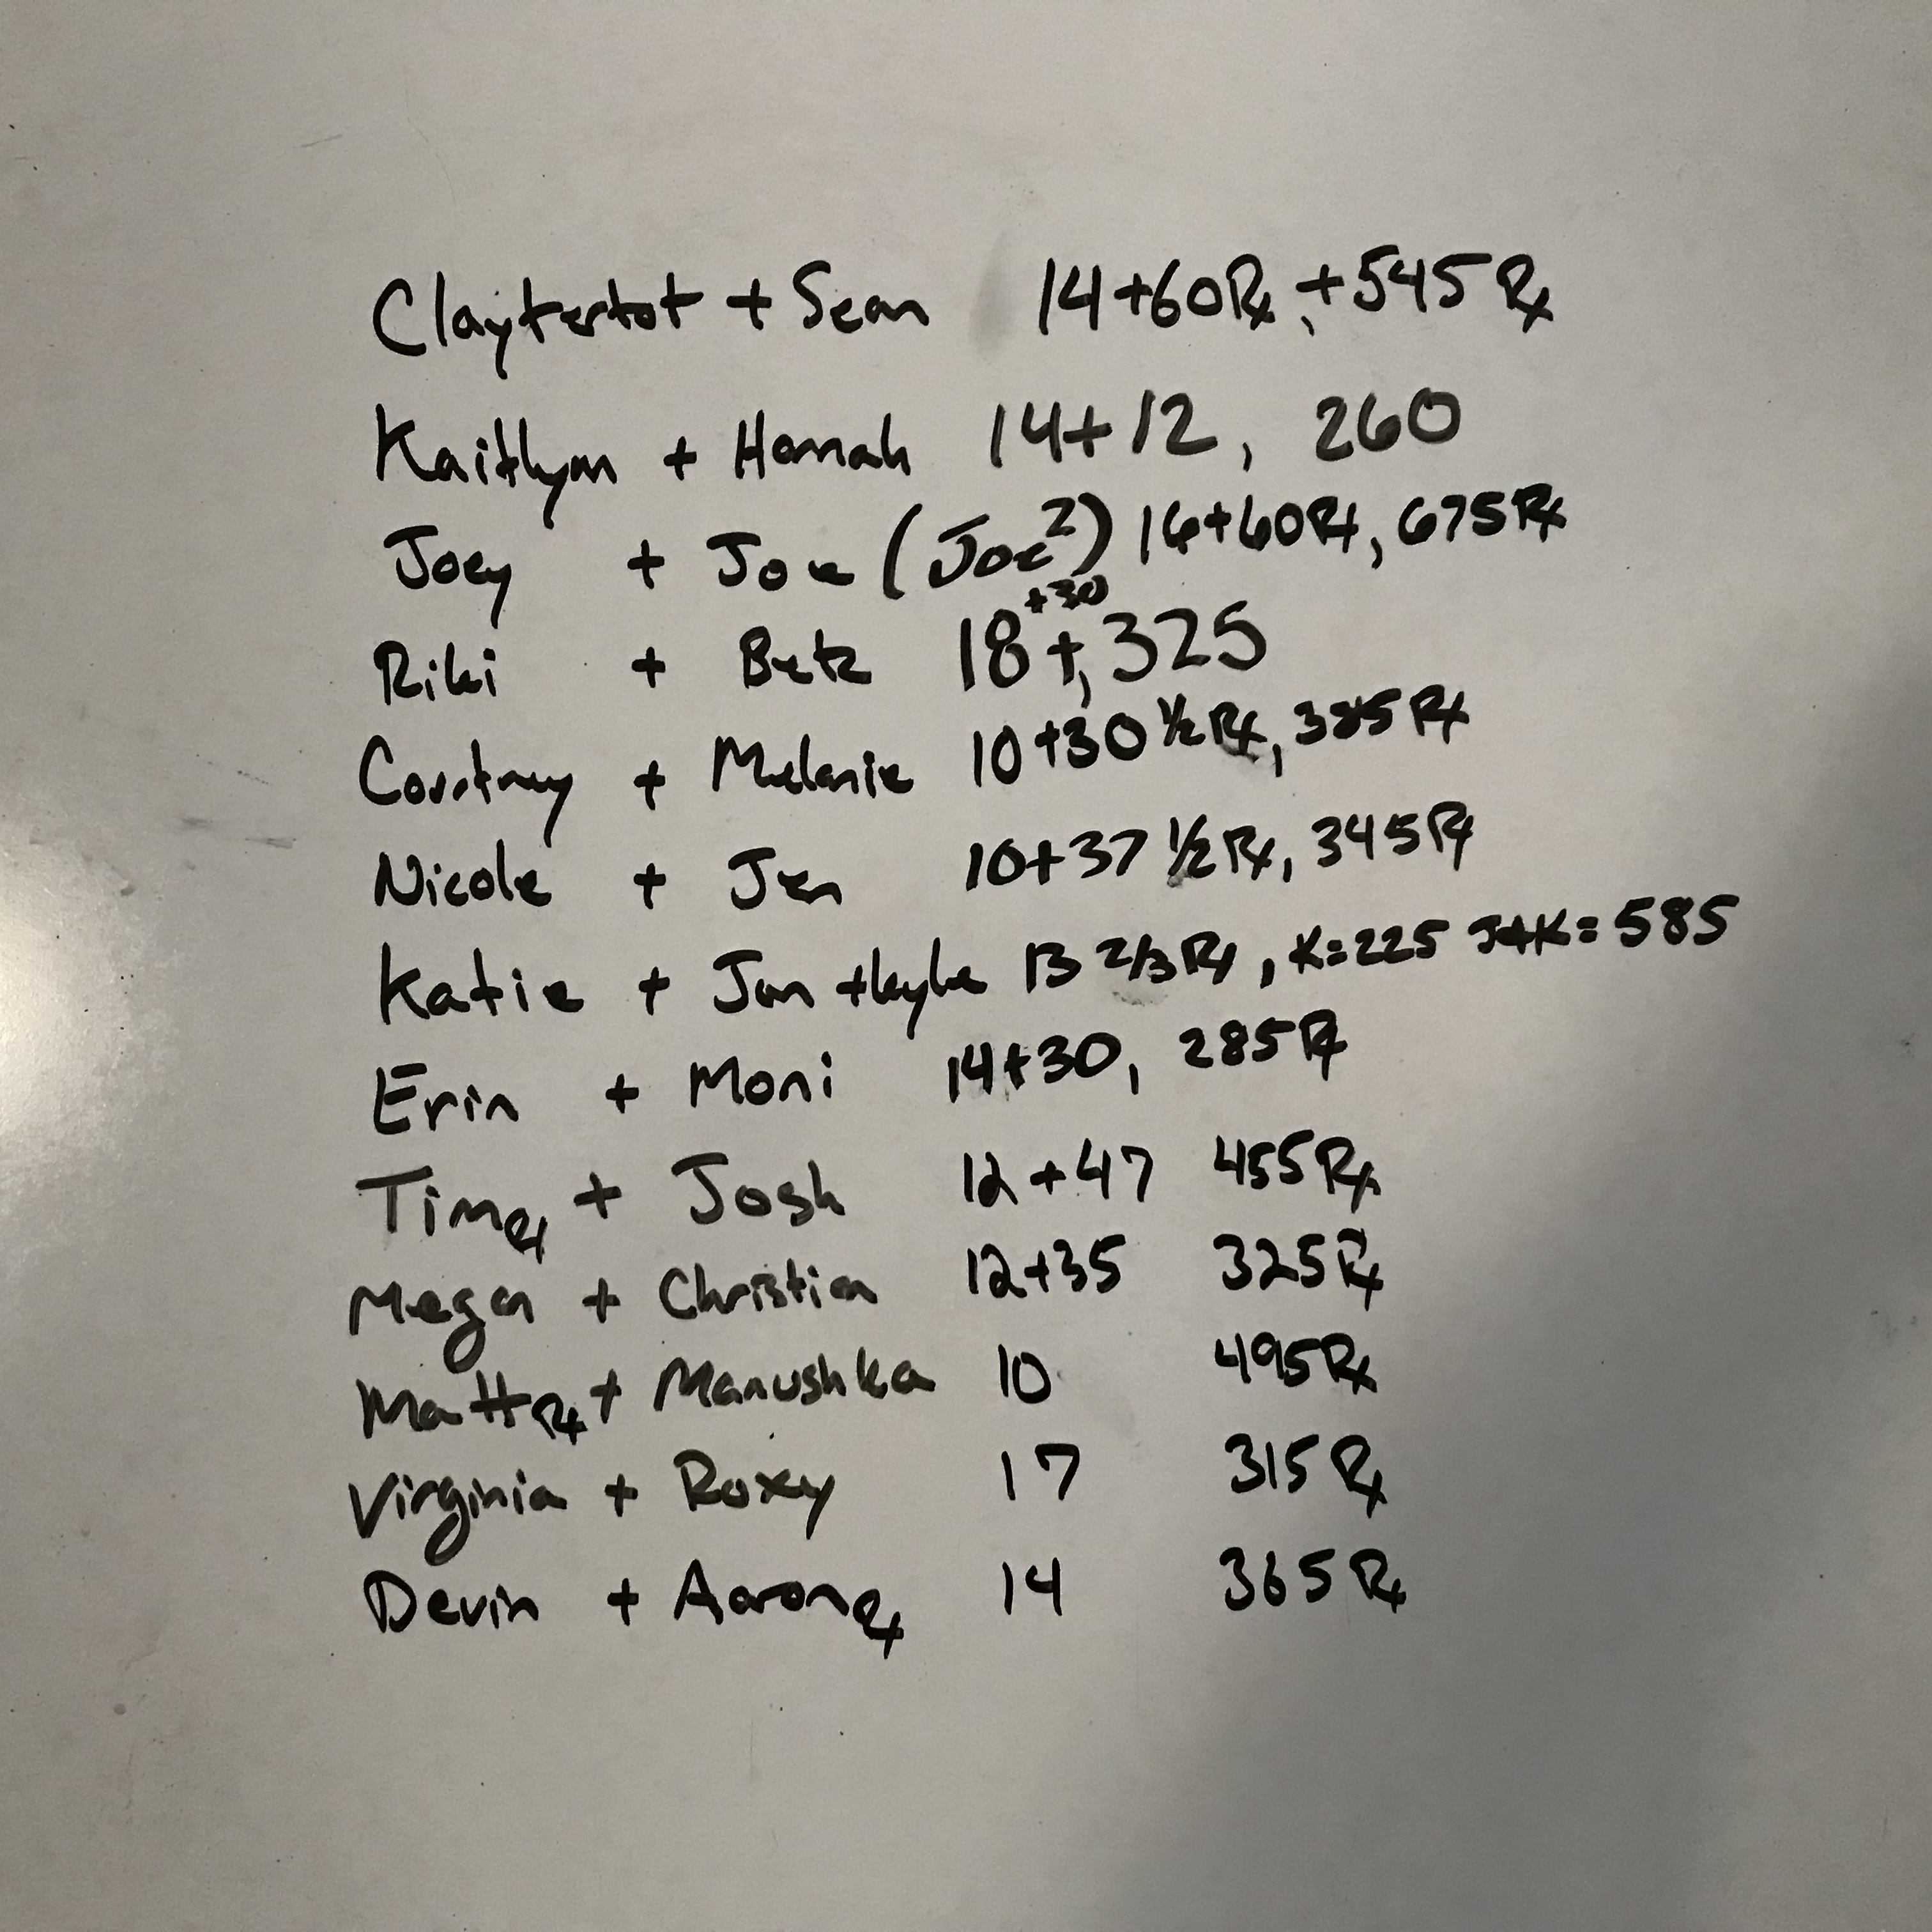 Claytertot + Sean 14+60Rx, +545Rx
Kaitlynn + Hannah 14+12, 260
Joey + Joe (Joe²) 16+60Rx, 675Rx
Riki + Betz 18+30, 325
Courtney + Melanie 10+30 ½Rx, 385Rx
Nicole + Jen 10+37 ½Rx, 345Rx
Katie + Jon +Kyle 13 2/3Rx, K=225 J+K=585
Erin + Moni 14+30, 285Rx
Tim Rx + Josh 12+47 455Rx
Megan + Christian 12+35 325Rx
Matt Rx + Manushka 10 495Rx
Virginia + Roxy 17 315Rx
Devin + Aaron Rx 14 365Rx